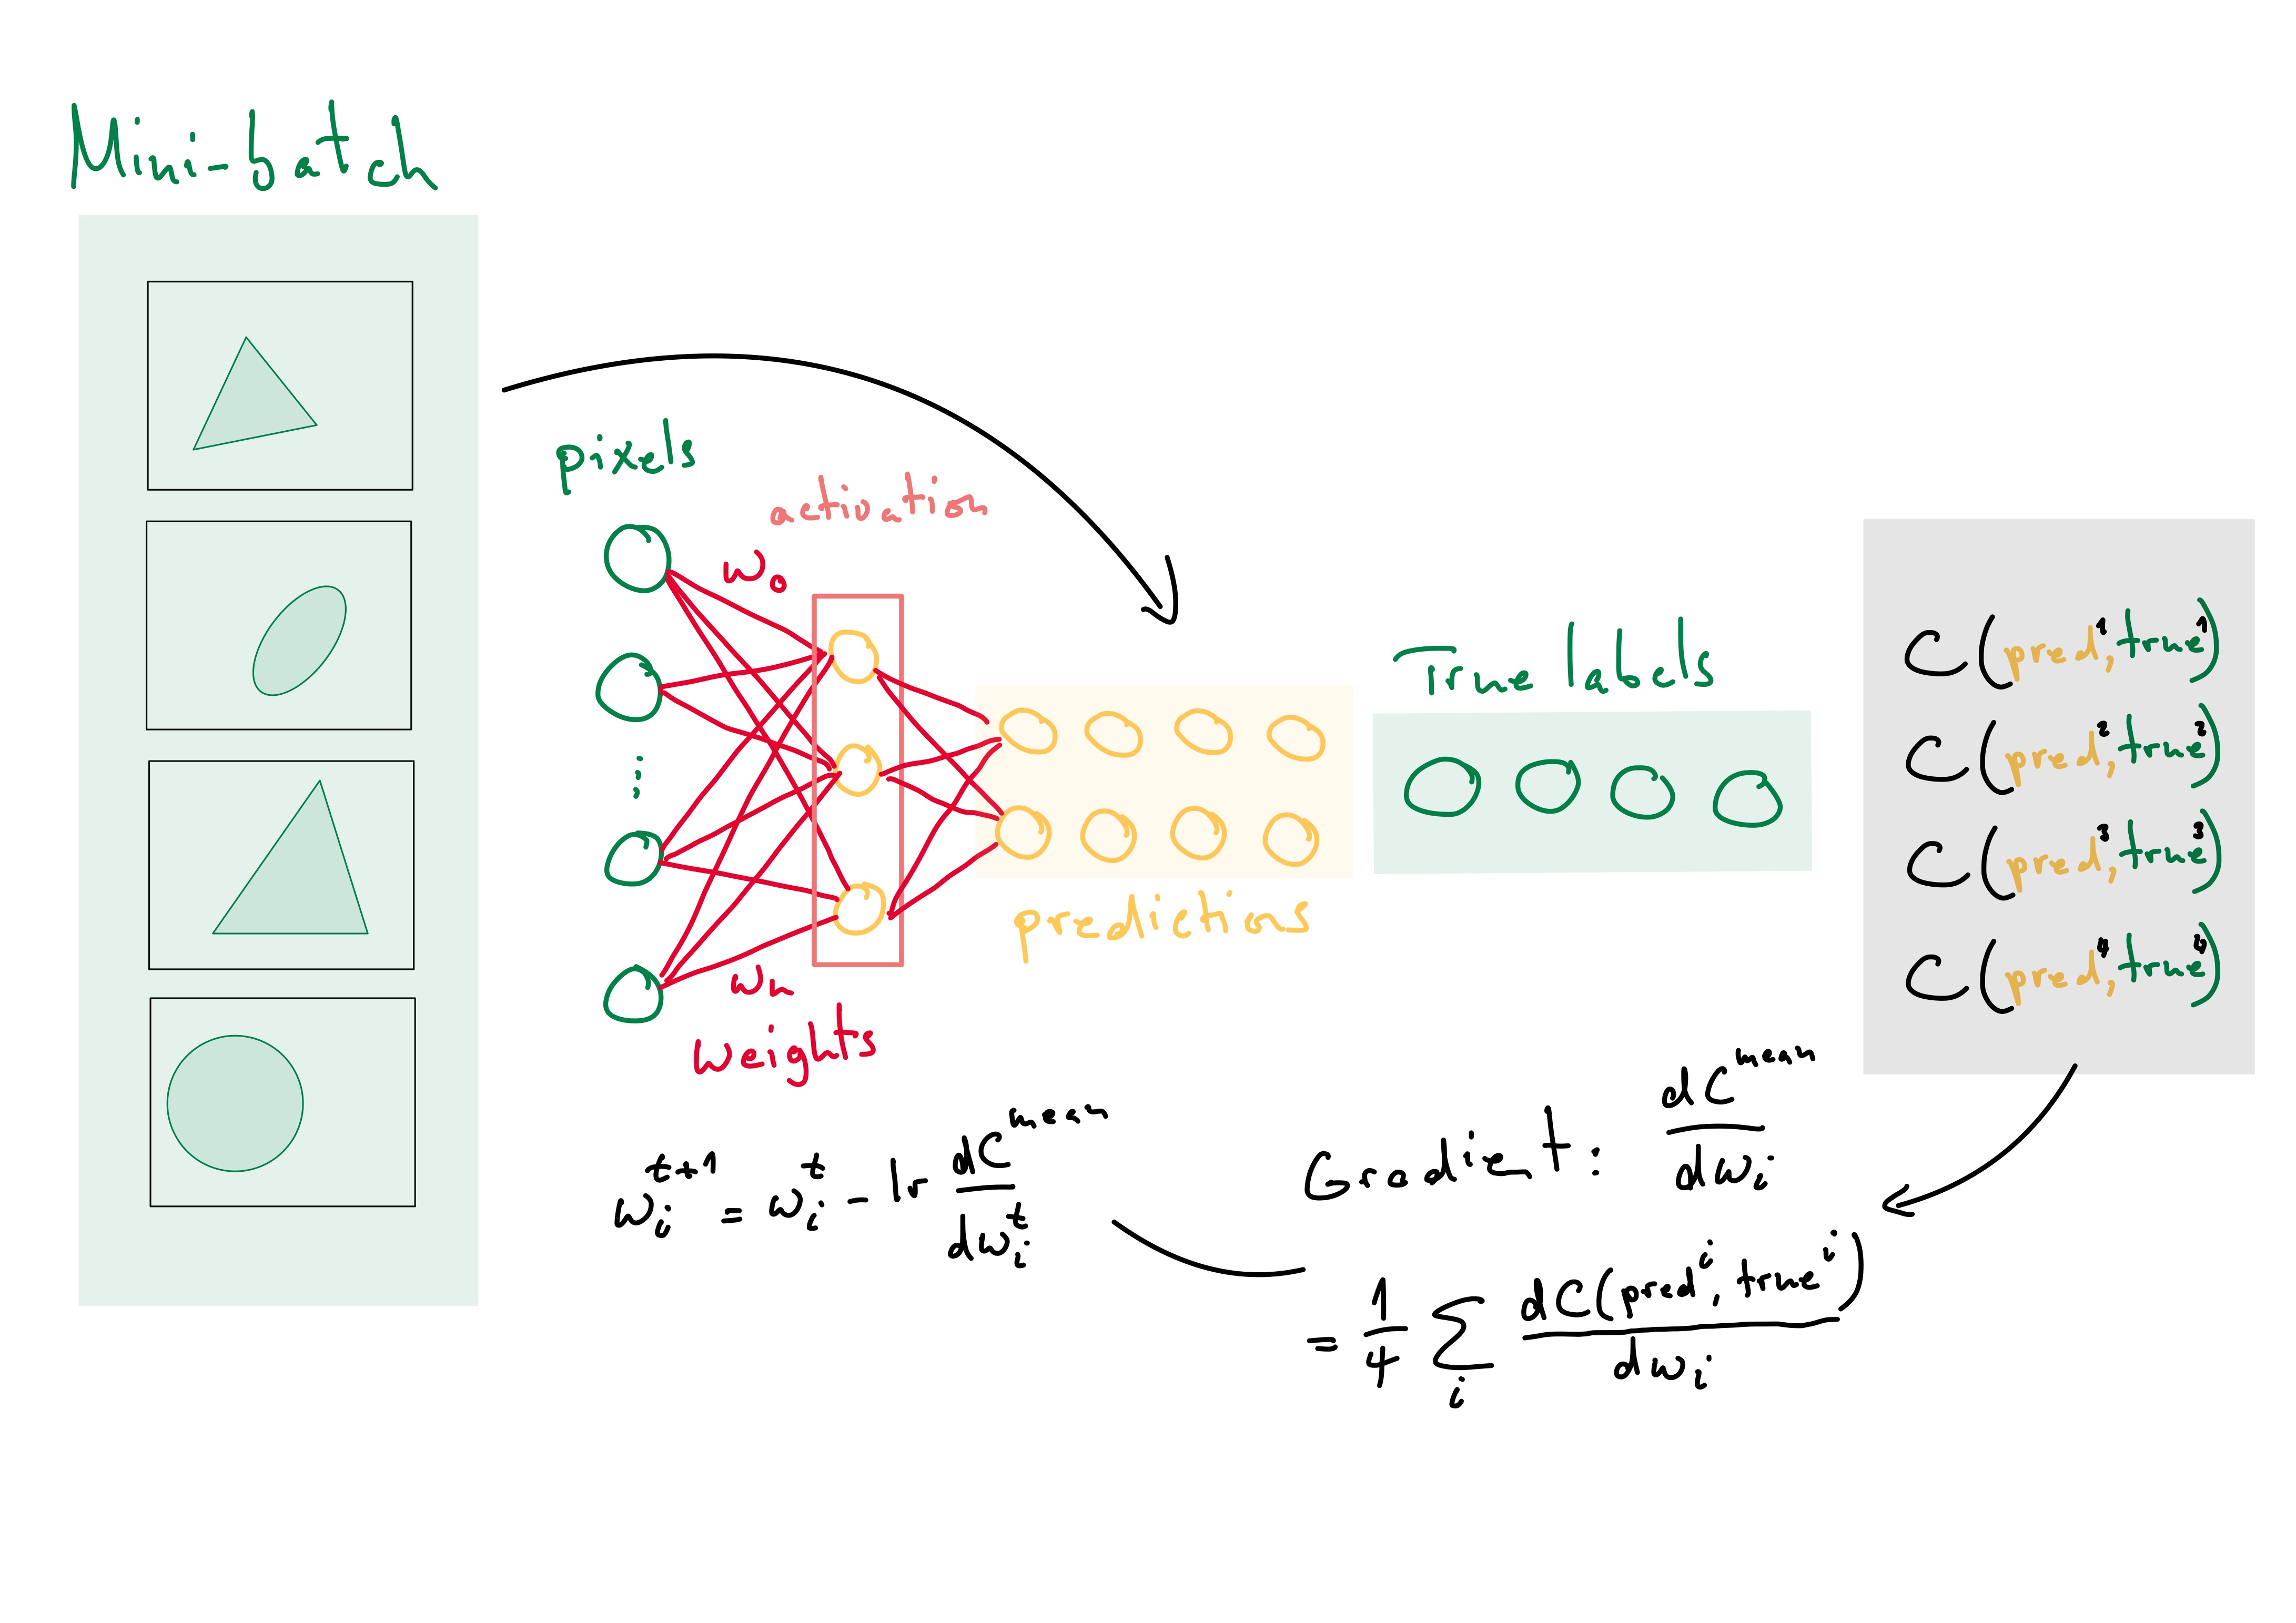 Mini-batch
pixels
activation
w₀
wₙ
weights
predictions
True labels
C(pred¹, true¹)
C(pred², true²)
C(pred³, true³)
C(pred⁴, true⁴)
Gradient: dC^mean / dwᵢ
= 1/4 ∑ᵢ dC(predⁱ, trueⁱ) / dwᵢ
wᵢ^t+1 = wᵢ^t - lr dC^mean / dwᵢ^t